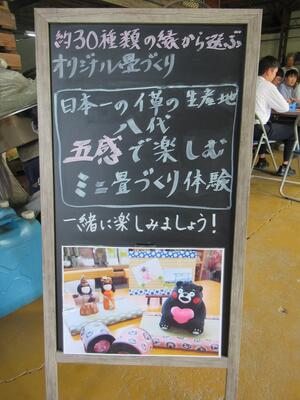 約30種類の縁から選ぶ
オリジナル畳づくり
日本一のイ草の生産地
八代
五感で楽しむ
ミニ畳づくり体験
一緒に楽しみましょう!